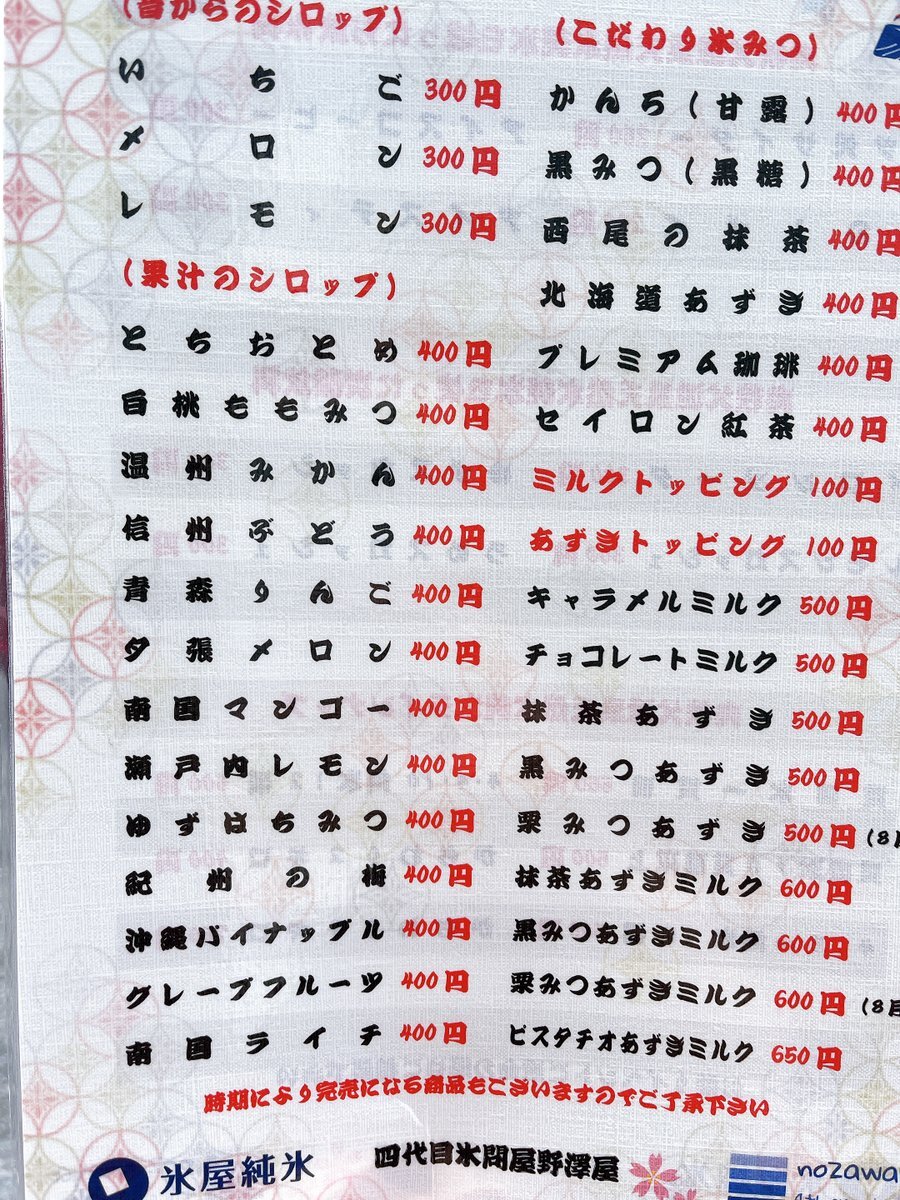 (昔からのシロップ)
いちご 300円
メロン 300円
レモン 300円
(果汁のシロップ)
とちおとめ 400円
白桃ももみつ 400円
温州みかん 400円
信州ぶどう 400円
青森りんご 400円
夕張メロン 400円
南国マンゴー 400円
瀬戸内レモン 400円
ゆずはちみつ 400円
紀州の梅 400円
沖縄パイナップル 400円
グレープフルーツ 400円
南国ライチ 400円
(こだわり氷みつ)
かんろ(甘露) 400円
黒みつ(黒糖) 400円
西尾の抹茶 400円
北海道あずき 400円
プレミアム珈琲 400円
セイロン紅茶 400円
ミルクトッピング 100円
あずきトッピング 100円
キャラメルミルク 500円
チョコレートミルク 500円
抹茶あずき 500円
黒みつあずき 500円
栗みつあずき 500円 (8月
抹茶あずきミルク 600円
黒みつあずきミルク 600円
栗みつあずきミルク 600円 (8月
ピスタチオあずきミルク 650円
時期により完売になる商品もございますのでご了承下さい
氷屋純氷
四代目氷問屋野澤屋
nozawa